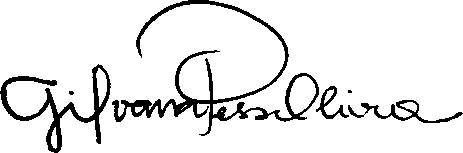 Gilvana Pessoliveira